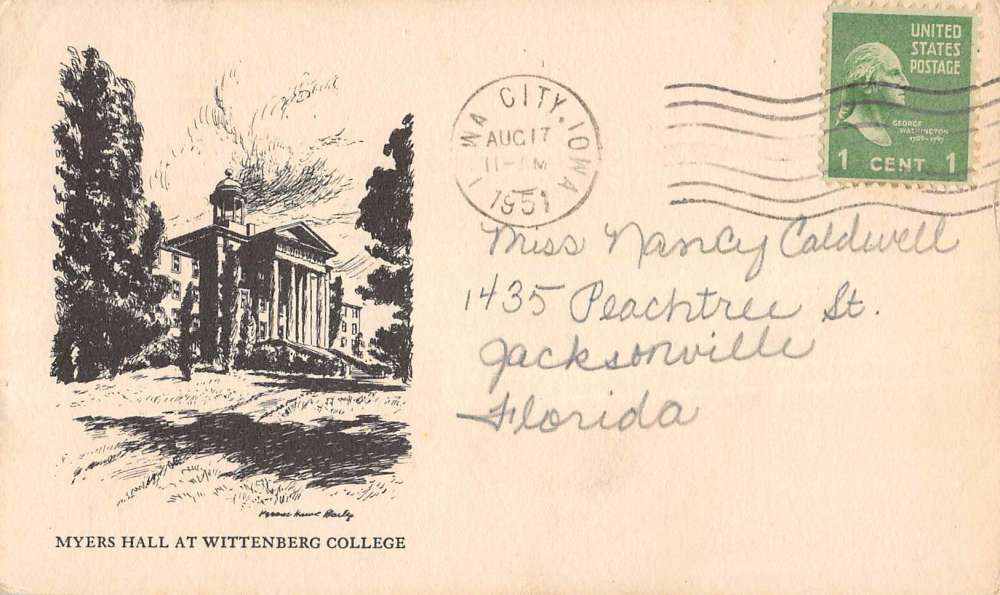 UNITED
STATES
POSTAGE
GEORGE
WASHINGTON
1 CENT 1
IWA CITY, IOWA
AUG 17
11-AM
1951
Miss Nancy Caldwell
1435 Peachtree St.
Jacksonville
Florida
MYERS HALL AT WITTENBERG COLLEGE